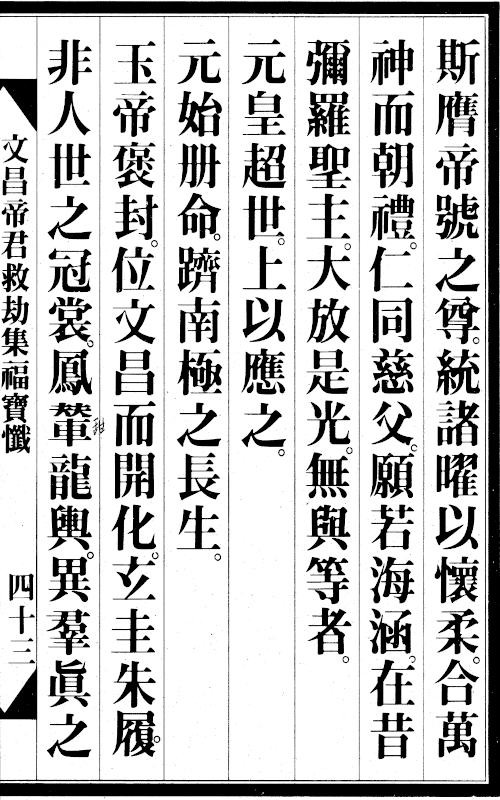 斯膺帝號之尊。統諸曜以懷柔。合萬
神而朝禮。仁同慈父。願若海涵。在昔
彌羅聖主。大放是光。無與等者。
元皇超世。上以應之。
元始册命。躋南極之長生。
玉帝褒封。位文昌而開化。玄圭朱履。
非人世之冠裳。鳳輦龍輿。異羣眞之
文昌帝君救劫集福寶懺
四十三